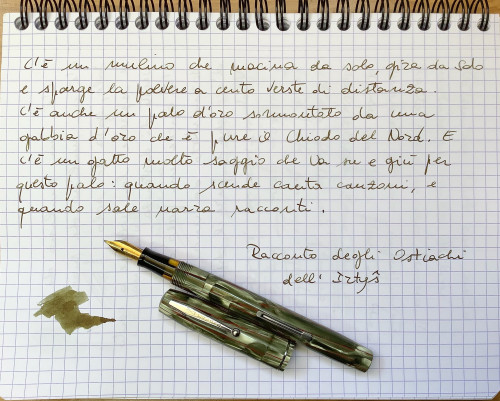 C'è un mulino che macina da solo, gira da solo
e sparge la polvere a cento verste di distanza.
C'è anche un palo d'oro sormontato da una
gabbia d'oro che è pure il Chiodo del Nord. E
c'è un gatto molto saggio che va su e giù per
questo palo: quando scende canta canzoni, e
quando sale narra racconti.
Racconto degli Ostiachi
dell' Irtyš